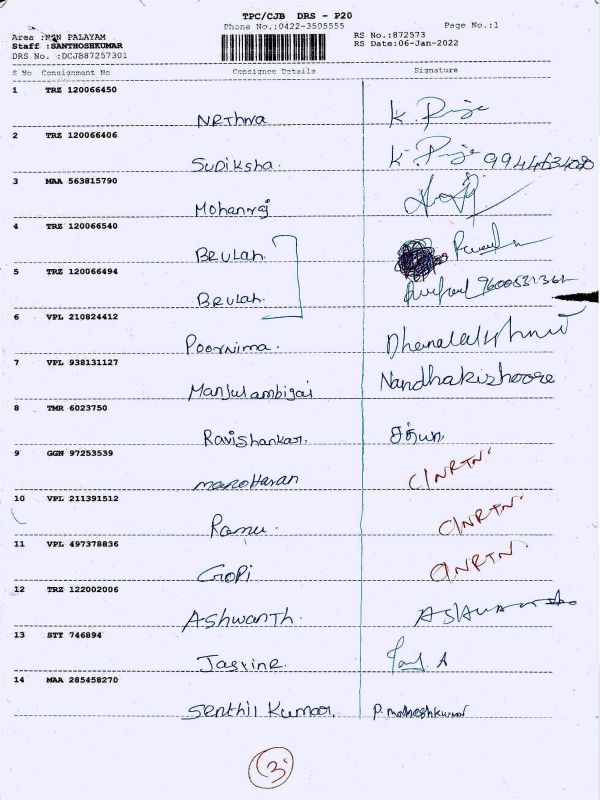 TPC/CJB DRS - P20
Phone No.:0422-3505555 Page No.:1
Area :NGN PALAYAM RS No.:872573
Staff :SANTHOSHKUMAR RS Date:06-Jan-2022
DRS No. :DCJB87257301
S No Consignment No Consignee Details Signature
1 TRZ 120066450
Nethra
2 TRZ 120066406
Sudiksha.
3 MAA 563815790
Mohanraj
4 TRZ 120066540
Beulah.
5 TRZ 120066494
Beulah. 9600531361
6 VPL 210824412
Poornima. Dhanalakshmi
7 VPL 938131127
Manjulambigai Nandhakishoore
8 TMR 6023750
Ravishankar.
9 GGN 97253539
manoharan C/NRTN.
10 VPL 211391512
Ramu. C/NRTN.
11 VPL 497378836
Gopi C/NRTN.
12 TRZ 122002006
Ashwanth.
13 STT 746894
Jasrine.
14 MAA 285458270
Senthil Kumar. P. maheshkumar
3